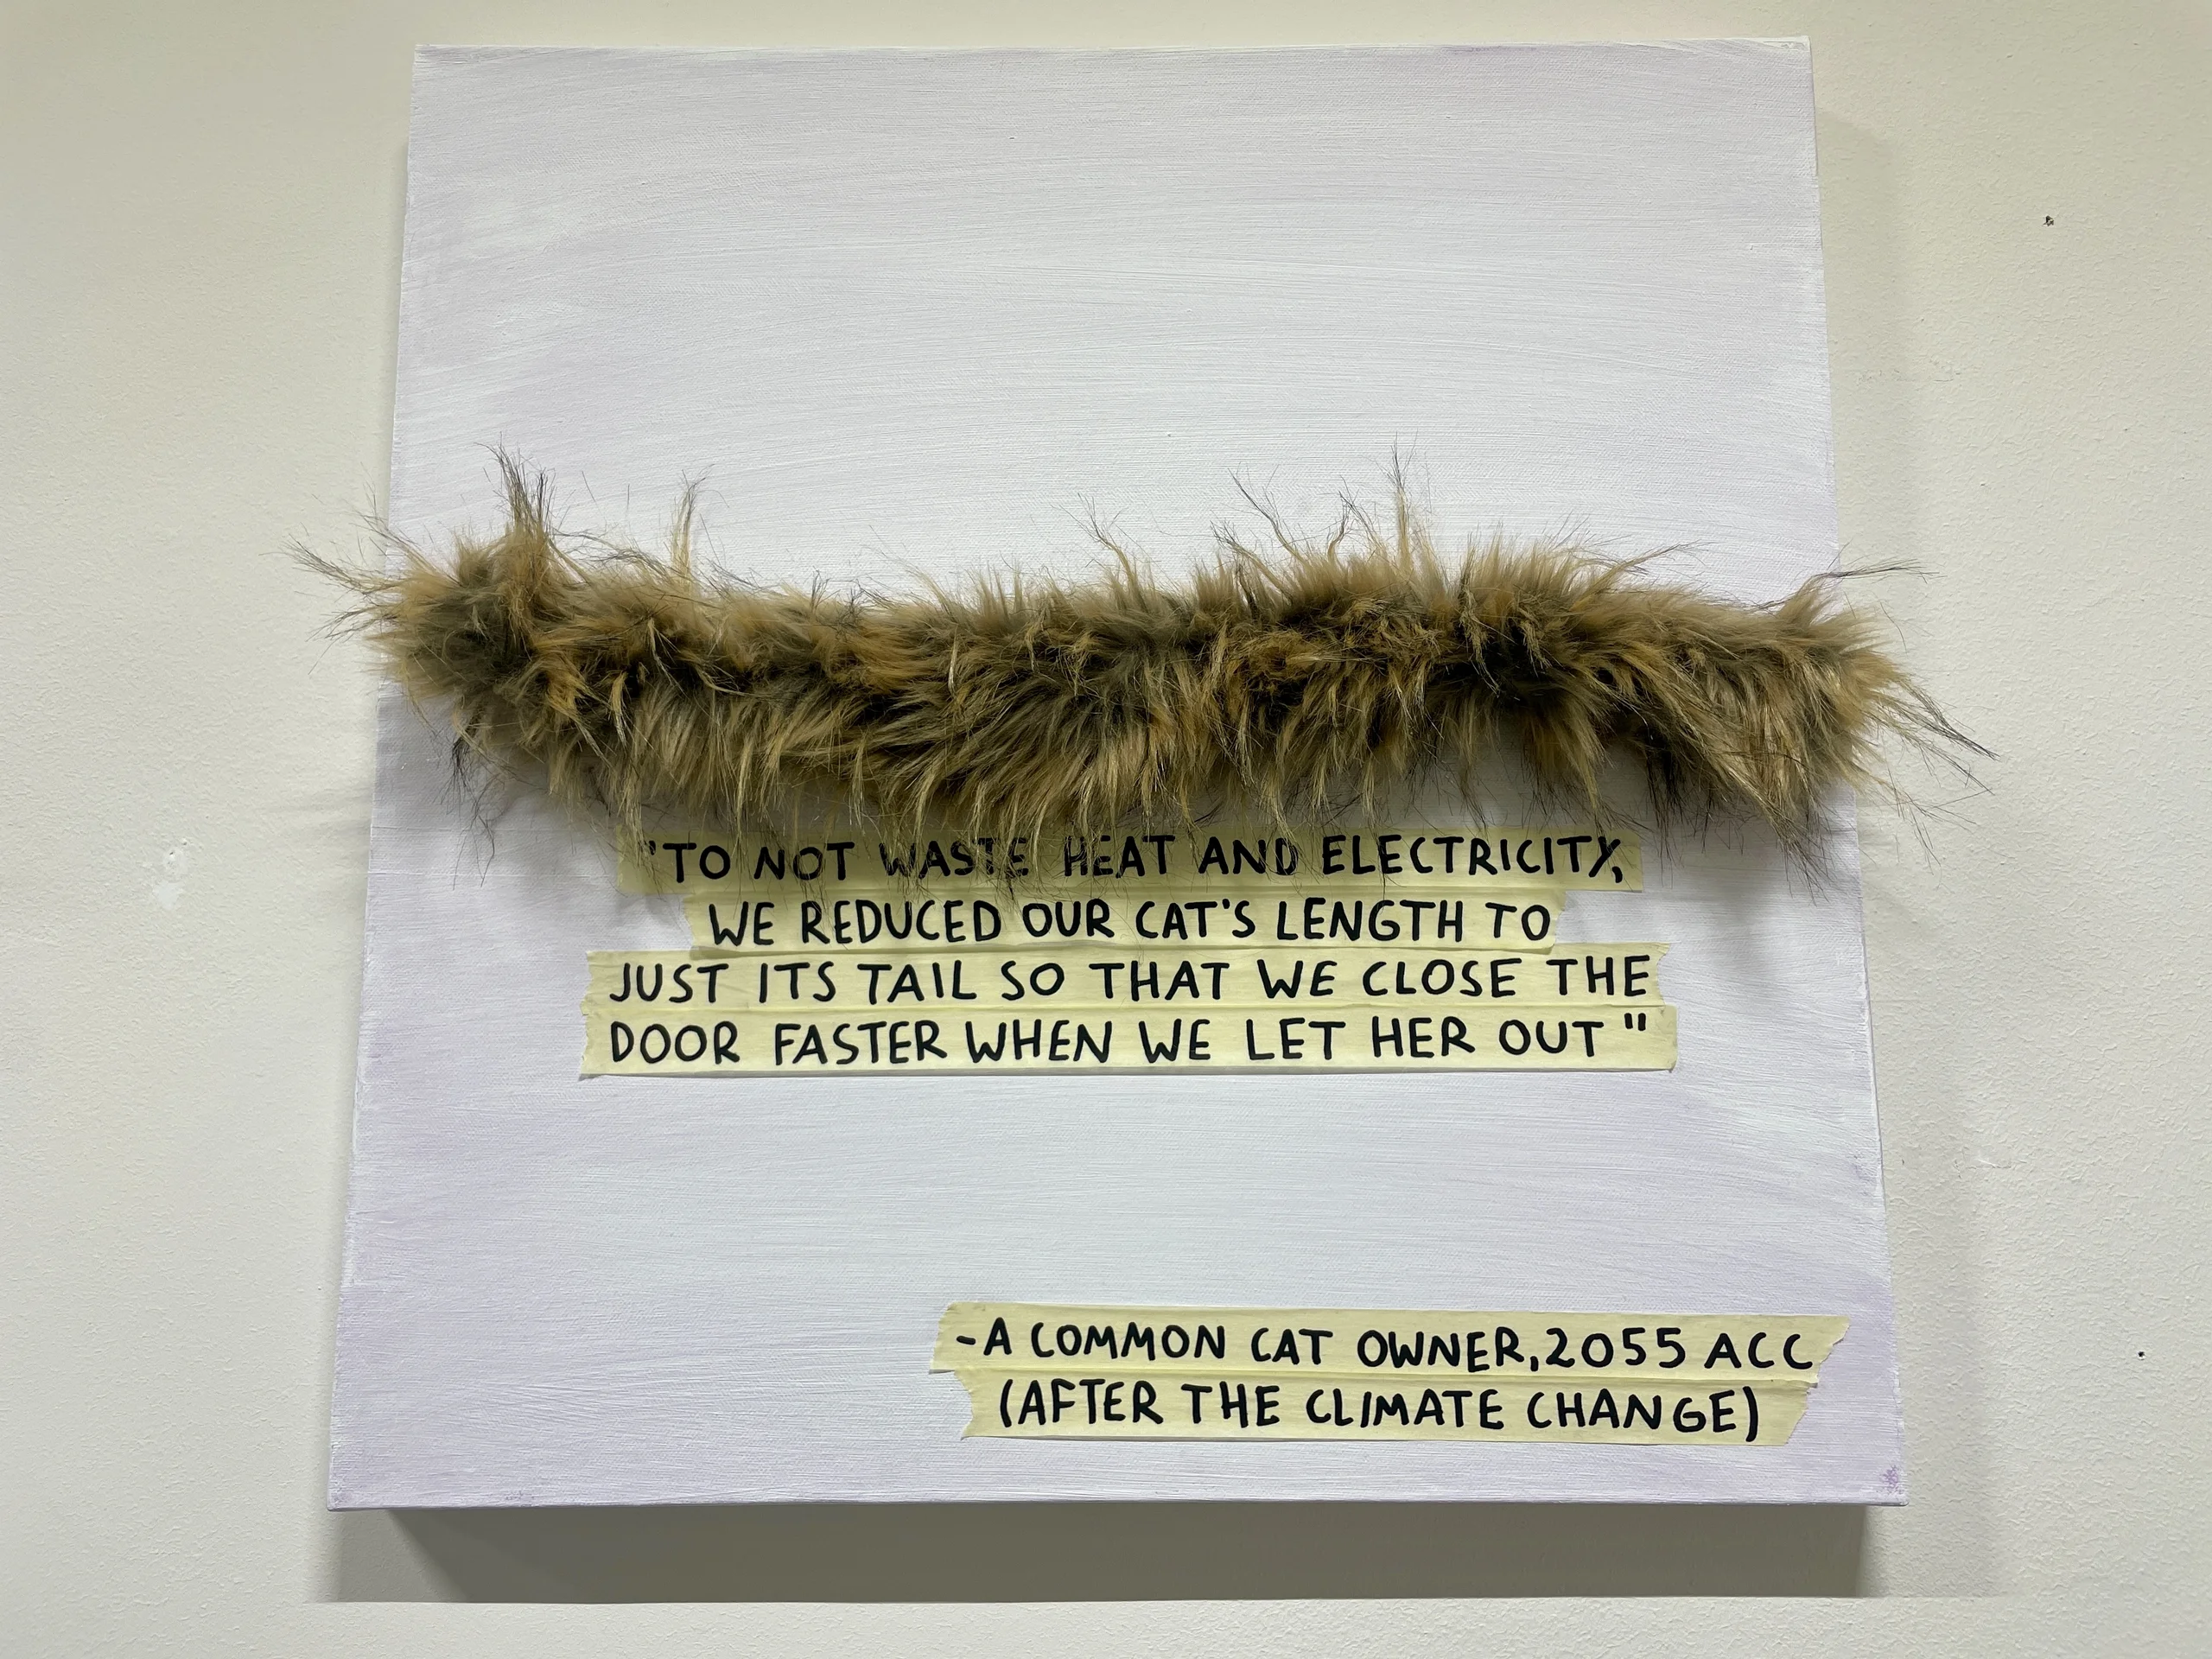 "TO NOT WASTE HEAT AND ELECTRICITY,
WE REDUCED OUR CAT'S LENGTH TO
JUST ITS TAIL SO THAT WE CLOSE THE
DOOR FASTER WHEN WE LET HER OUT"
-A COMMON CAT OWNER, 2055 ACC
(AFTER THE CLIMATE CHANGE)